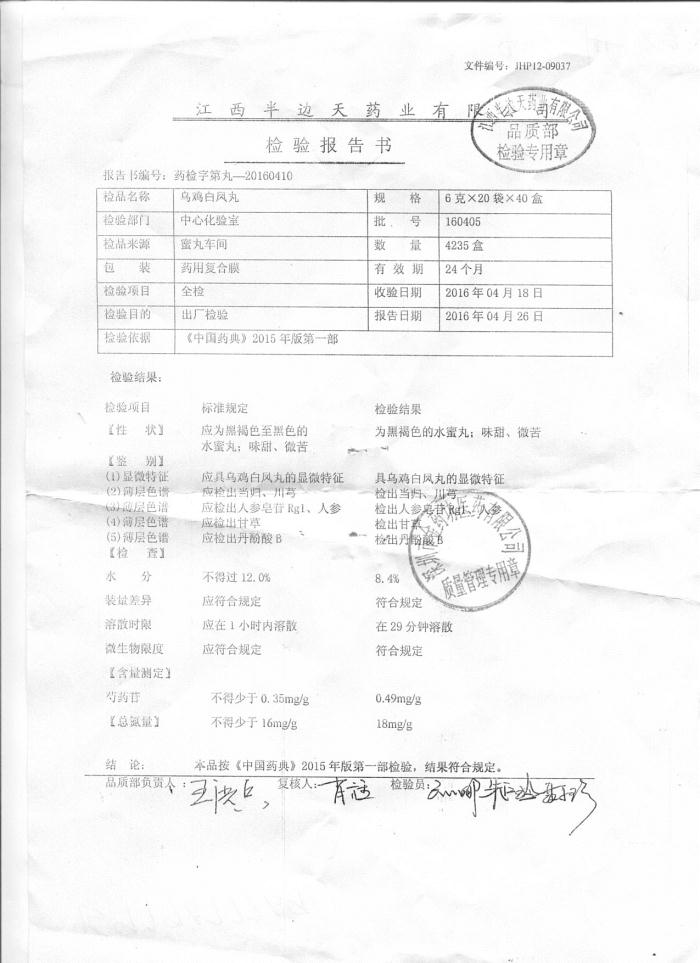 文件编号：JHP12-09037
江西半边天药业有限公司
品质部
检验专用章
检验报告书
报告书编号：药检字第丸—20160410
检品名称 乌鸡白凤丸 规 格 6克×20袋×40盒
检验部门 中心化验室 批 号 160405
检品来源 蜜丸车间 数 量 4235盒
包 装 药用复合膜 有 效 期 24个月
检验项目 全检 收验日期 2016年04月18日
检验目的 出厂检验 报告日期 2016年04月26日
检验依据 《中国药典》2015年版第一部
检验结果：
检验项目 标准规定 检验结果
【性 状】 应为黑褐色至黑色的 为黑褐色的水蜜丸；味甜、微苦
水蜜丸；味甜、微苦
【鉴 别】
(1)显微特征 应具乌鸡白凤丸的显微特征 具乌鸡白凤丸的显微特征
(2)薄层色谱 应检出当归、川芎 检出当归、川芎
(3)薄层色谱 应检出人参皂苷Rg1、人参 检出人参皂苷Rg1、人参
(4)薄层色谱 应检出甘草 检出甘草
(5)薄层色谱 应检出丹酚酸B 检出丹酚酸B
【检 查】
水 分 不得过12.0% 8.4%
质量管理专用章
装量差异 应符合规定 符合规定
溶散时限 应在1小时内溶散 在29分钟溶散
微生物限度 应符合规定 符合规定
【含量测定】
芍药苷 不得少于0.35mg/g 0.49mg/g
【总氮量】 不得少于16mg/g 18mg/g
结 论: 本品按《中国药典》2015年版第一部检验，结果符合规定。
品质部负责人： 复核人: 检验员: